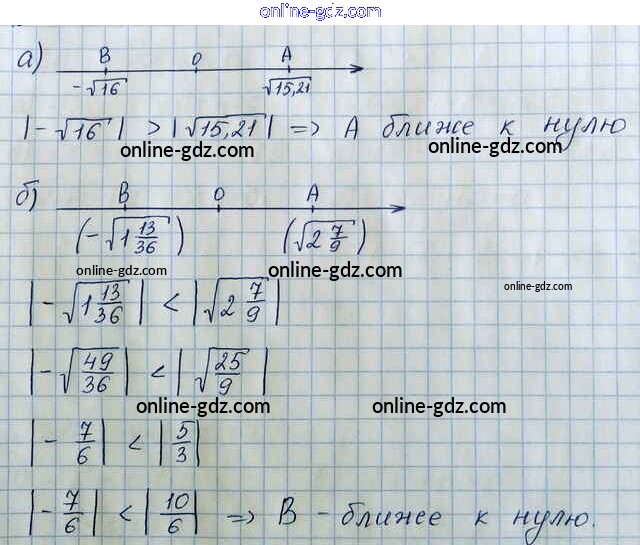 online-gdz.com
а)
B O A
-√16 √15,21
|-√16| > |√15,21| => A ближе к нулю
online-gdz.com online-gdz.com
б)
B O A
(-√1 13/36) (√2 7/9)
online-gdz.com online-gdz.com online-gdz.com
|-√1 13/36| < |√2 7/9|
|-√49/36| < |√25/9|
online-gdz.com online-gdz.com
|-7/6| < |5/3|
|-7/6| < |10/6| => B - ближе к нулю.